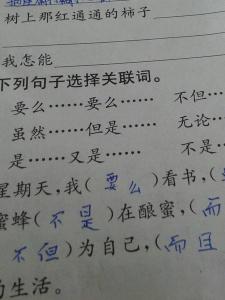 树上那红通通的柿子
我怎能
下列句子选择关联词。
要么……要么…… 不但…
虽然……但是…… 无论…
是……又是…… 不是…
星期天，我(要么)看书，(
蜜蜂(不是)在酿蜜，(而
不但)为自己，(而且
的生活。